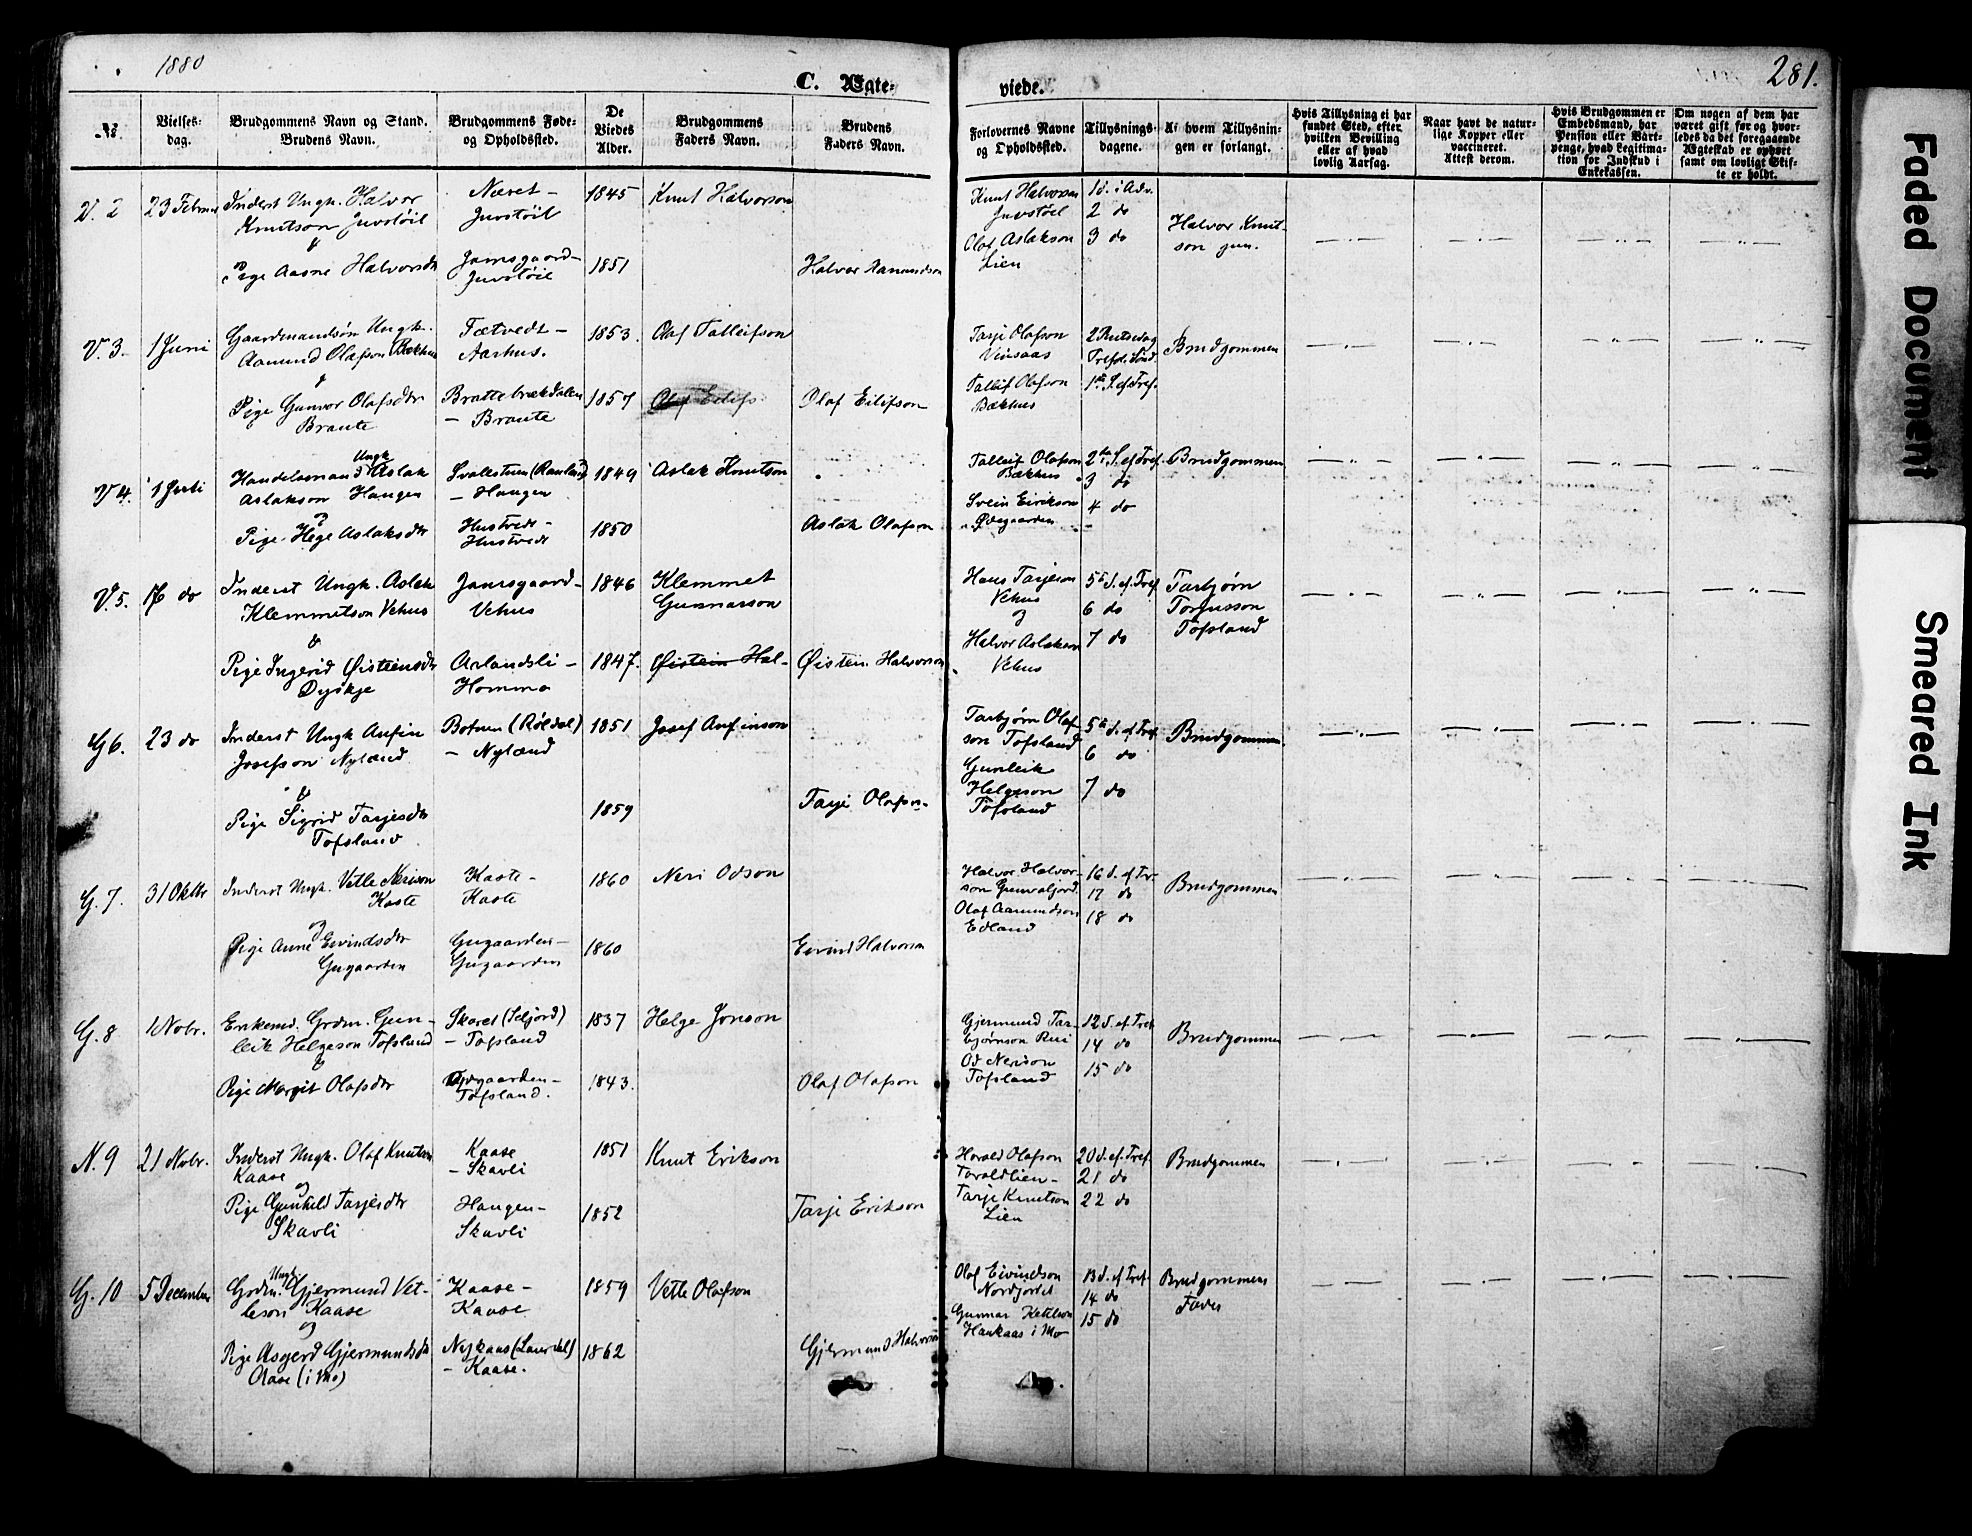 1880
C. Ægte-
viede.
281.
Faded Document
Smeared Ink
№
Vielses-
dag.
Brudgommens Navn og Stand.
Brudens Navn.
Brudgommens Føde-
og Opholdssted.
De
Viedes
Alder.
Brudgommens
Faders Navn.
Brudens
Faders Navn.
Forlovernes Navne
og Opholdssted.
Tillysnings-
dagene.
Af hvem Tillysnin-
gen er forlangt.
Hvis Tillysning ei har
fundet Sted, efter
hvilken Bevilling
eller af hvad
lovlig Aarsag.
Naar havt de natur-
lige Kopper eller
vaccineret.
Attest derom.
Hvis Brudgommen er
Embedsmand, har
Pension eller Vart-
penge, hvad Legitima-
tion for Indskud i
Enkekassen.
Om nogen af dem har
været gift før og hvor-
ledes da det foregaaende
Ægteskab er ophørt
samt om lovligt Skif-
te er holdt.
V. 2
23 Februar
Inderst Ungk. Halvor
Knutson Juvstøil
&
Pige Aasne Halvorsdr
Næret -
Juvstøil
Jamsgaard -
Juvstøil
1845
1851
Knut Halvorson
Halvor Aamundson
Knut Halvorson
Juvstøil
Olaf Aslakson
Lien
1 S. i Adv.
2 do
3 do
Halvor Knut-
son jun.
V. 3.
1 Juni
Gaardmandsøn Ungk.
Aamund Olafson Bækhus
&
Pige Gunvor Olafsdtr
Braute
Fætvedt -
Aarhus.
Brattebrækdalen
- Braute
1853.
1857
Olaf Talleifson
Olaf Eilifs
Olaf Eilifson
Tarje Olafson
Vinsaas
Talleif Olafson
Bækhus
2 Pintsedag
Trefol. Sønd.
1ste S. ef Tref.
Brudgommen
V 4.
1 Juli
Ungk
Handelsmand Aslak
Aslakson Haugen
og
Pige Hege Aslaksdtr
Svalestuen (Rauland)
- Haugen
Hustvedt -
Hustvedt
1849
1850
Aslak Knutson
Aslak Olafson
Talleif Olafson
Bækhus
Svein Eirikson
Øvegaarden
2den S. ef Tref.
3 do
4 do
Brudgommen
V. 5.
16 do
Inderst Ungk. Aslak
Klemmetson Vehus
&
Pige Ingerid Øisteinsdtr
Dyskje
Jamsgaard -
Vehus
Arlandsli -
Homme
1846
1847.
Klemmet
Gunnarson
Øistein Hal-
Øistein Halvorson
Hans Tarjeson
Vehus
og
Halvor Aslakson
Vehus
5te S. ef. Tref.
6 do
7 do
Tarbjørn
Torjusson
Tofsland
G 6.
23 do
Inderst Ungk Anfin
Josefson Nyland
&
Pige Sigrid Tarjesdtr
Tofsland
Botnen (Røldal)
- Nyland
1851
1859
Josef Anfinson
Tarje Olafson
Tarbjørn Olaf-
son Tofsland
Gunleik
Helgeson
Tofsland
5te S. ef Tref.
6 do
7 do
Brudgommen.
G. 7.
31 Oktbr
Inderst Ungk. Vetle Nerison
Kaste
og
Pige Anne Eivindsdtr
Gugaarden
Kaste -
Kaste
Gugaarden -
Gugaarden
1860
1860
Neri Odson
Eivind Halvorson
Halvor Halvor-
son Gunvaljord
Olaf Aamundson
Edland
16 S. ef Tr.
17 do
18 do
Brudgommen
G. 8
1 Nobr.
Enkemd. Grdm. Gun-
leik Helgeson Tofsland
&
Pige Margit Olafsdtr
Skaret (Seljord)
- Tofsland
Øvgaarden -
Tofsland.
1837
1843.
Helge Jonson
Olaf Olafson
Gjermund Tar-
bjørnson Rui
Od Nerison
Tofsland
12 S. ef Tref.
14 do
15 do
Brudgommen
N. 9
21 Nobr.
Inderst Ungk. Olaf Knutson
Kaase
og
Pige Gunhild Tarjesdtr
Skavli
Kaase
- Skavli
Haugen -
Skavli
1851
1852
Knut Erikson
Tarje Erikson
Harald Olafson
Taraldlien -
Tarje Knutson
Lien
20 S. ef. Tref.
21 do
22 do
Brudgommen
G. 10
5 December
Ungk.
Grdm. Gjermund Vet-
leson Kaase
og
Pige Asgerd Gjermundsdtr
Aase (i Mo)
Kaase -
Kaase
Nykaas (Laurdal)
- Kaase.
1859
1862
Vetle Olafson
Gjermund Halvorson
Olaf Eivindson
Nordjordet
Gunnar Ketilson
Haukaas i Mo
13 S. ef Tref.
14 do
15 do
Brudgommens
Fader